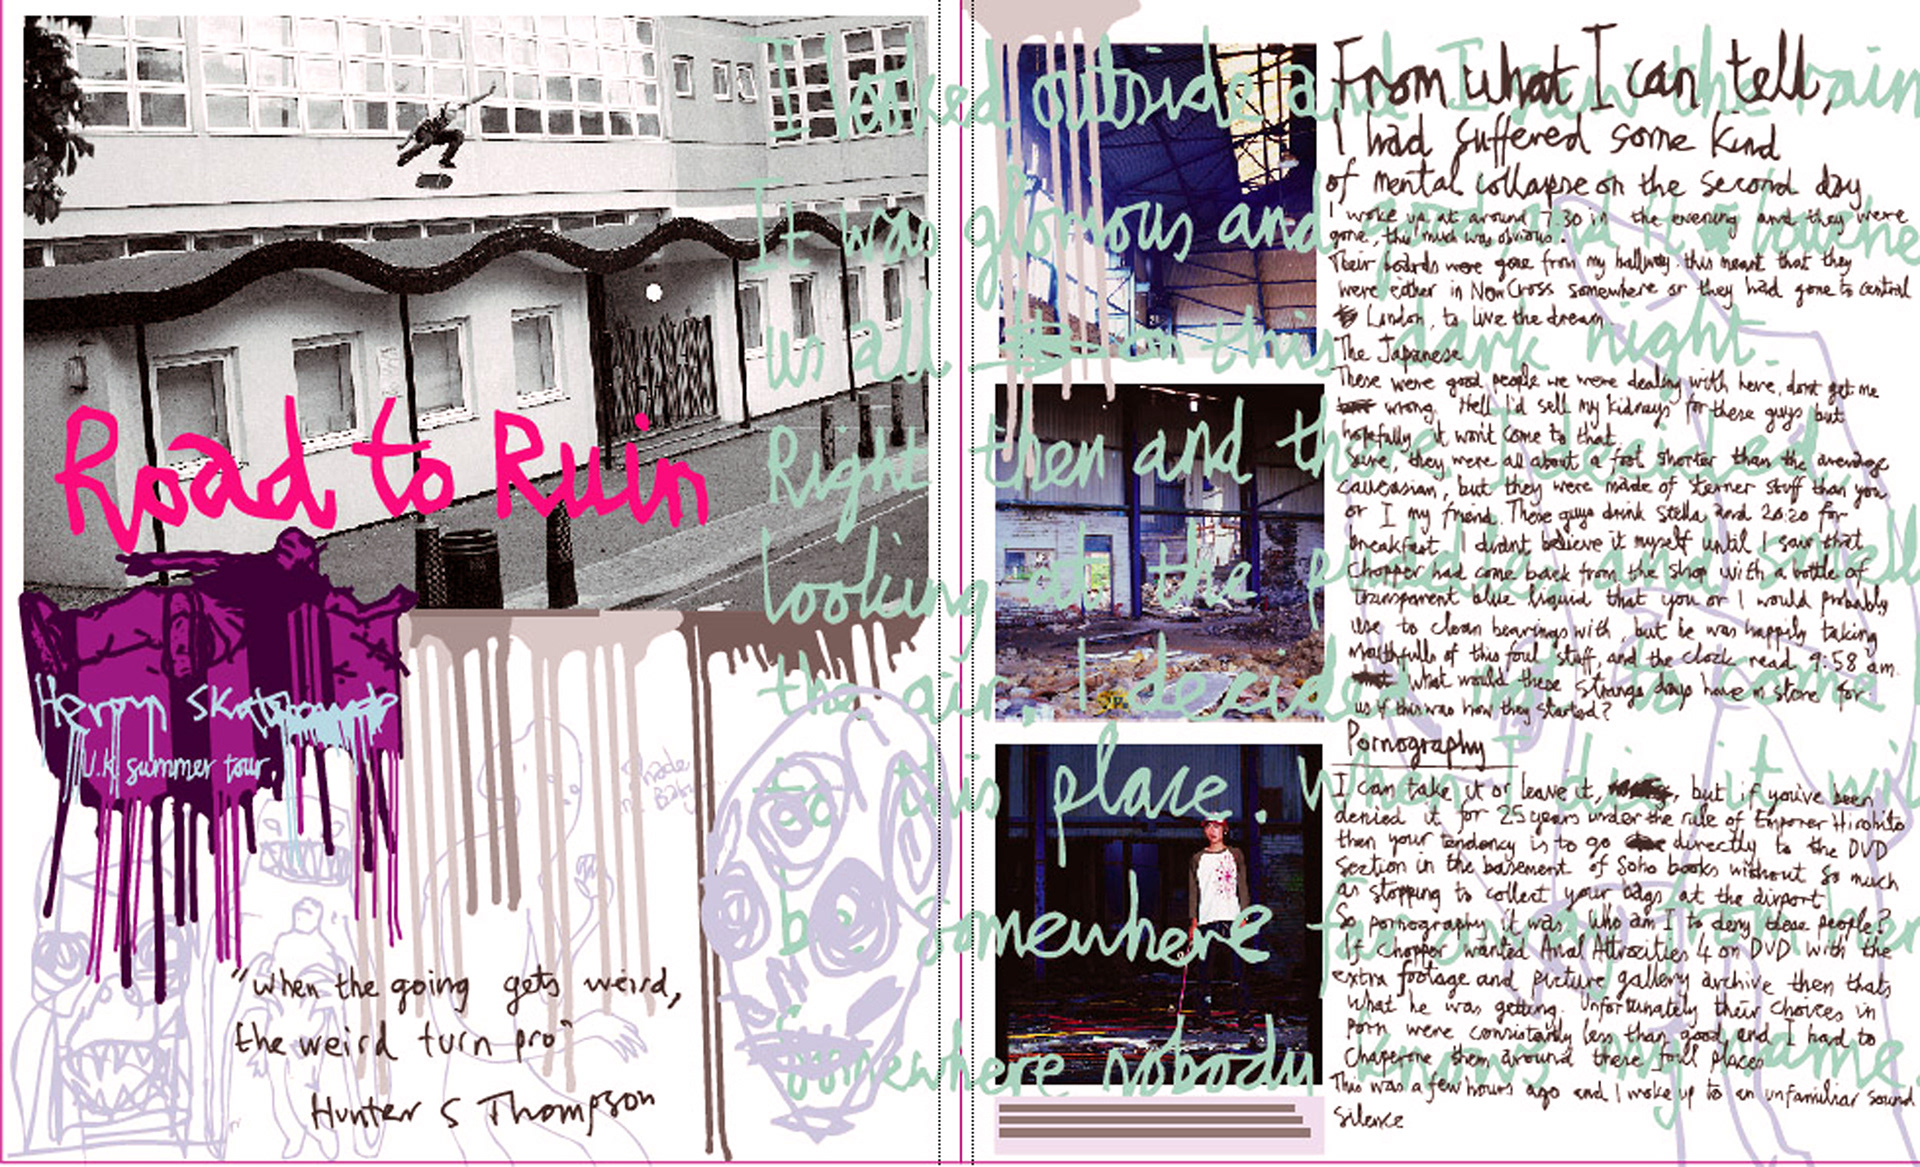 Road to Ruin
Heroin Skateboards
U.K. summer tour
"when the going gets weird,
the weird turn pro"
Hunter S Thompson
I looked outside and I saw the rain
It was glorious and
us all on this dark night.
Right then and there I decided
looking at the puddles and smell
the air, I decided to come
to this place. When I die it will
be somewhere far away from here
Somewhere nobody knows my name.
From what I can tell,
I had suffered some kind
of mental collapse on the second day
I woke up at around 7.30 in the evening and they were
gone, this much was obvious.
Their boards were gone from my hallway. this meant that they
were either in New Cross somewhere or they had gone to central
London, to live the dream
The Japanese
These were good people we were dealing with here, dont get me
wrong. Hell I'd sell my kidneys for these guys but
hopefully it won't come to that.
Sure, they were all about a foot shorter than the average
caucasian, but they were made of sterner stuff than you
or I my friend. These guys drink Stella and 20.20 for
breakfast. I didnt believe it myself until I saw that
Chopper had come back from the shop with a bottle of
transparent blue liquid that you or I would probably
use to clean bearings with, but he was happily taking
mouthfulls of this foul stuff, and the clock read 9:58 am.
What would these strange days have in store for
us if this was how they started?
Pornography
I can take it or leave it, but if you've been
denied it for 25 years under the rule of Emporer Hirohito
then your tendancy is to go directly to the DVD
section in the basement of Soho books without so much
as stopping to collect your bags at the airport
So pornography it was. Who am I to deny these people?
If Chopper wanted Anal Attrocities 4 on DVD with the
extra footage and picture gallery archive then thats
what he was getting. Unfortunately their choices in
porn were consistantly less than good and I had to
chaperone them around these foul places
This was a few hours ago and I woke up to an unfamiliar sound
Silence